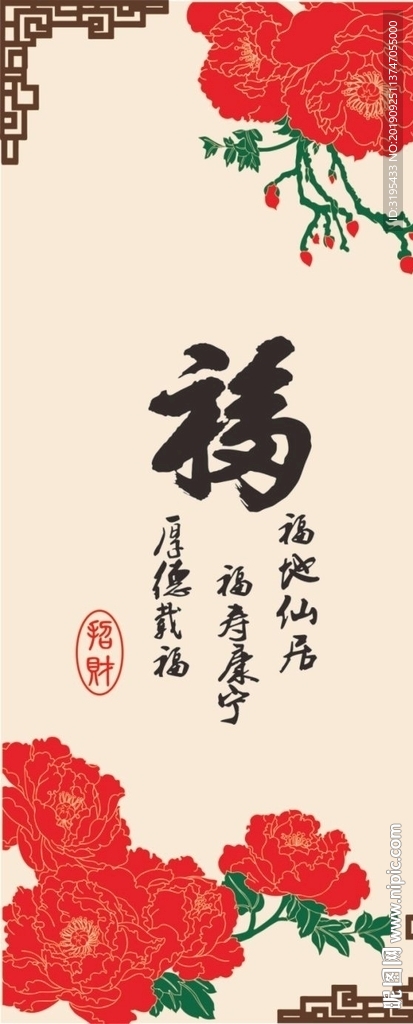 福
福地仙居
福寿康宁
厚德载福
招財
ID:3195433 NO:20190925113747055000
昵图网 www.nipic.com